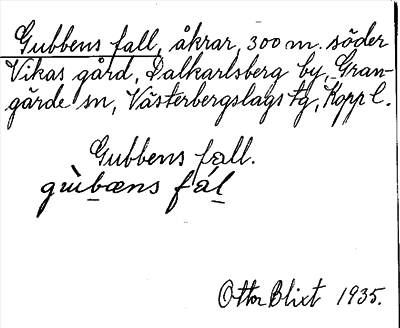 Gubbens fall, åkrar, 300 m. söder
Vikas gård, Dalkarlsberg by, Gran-
gärde sn, Västerbergslags tg, Kopp l.
Gubbens fall.
gùbæns fál
Otto Blixt 1935.